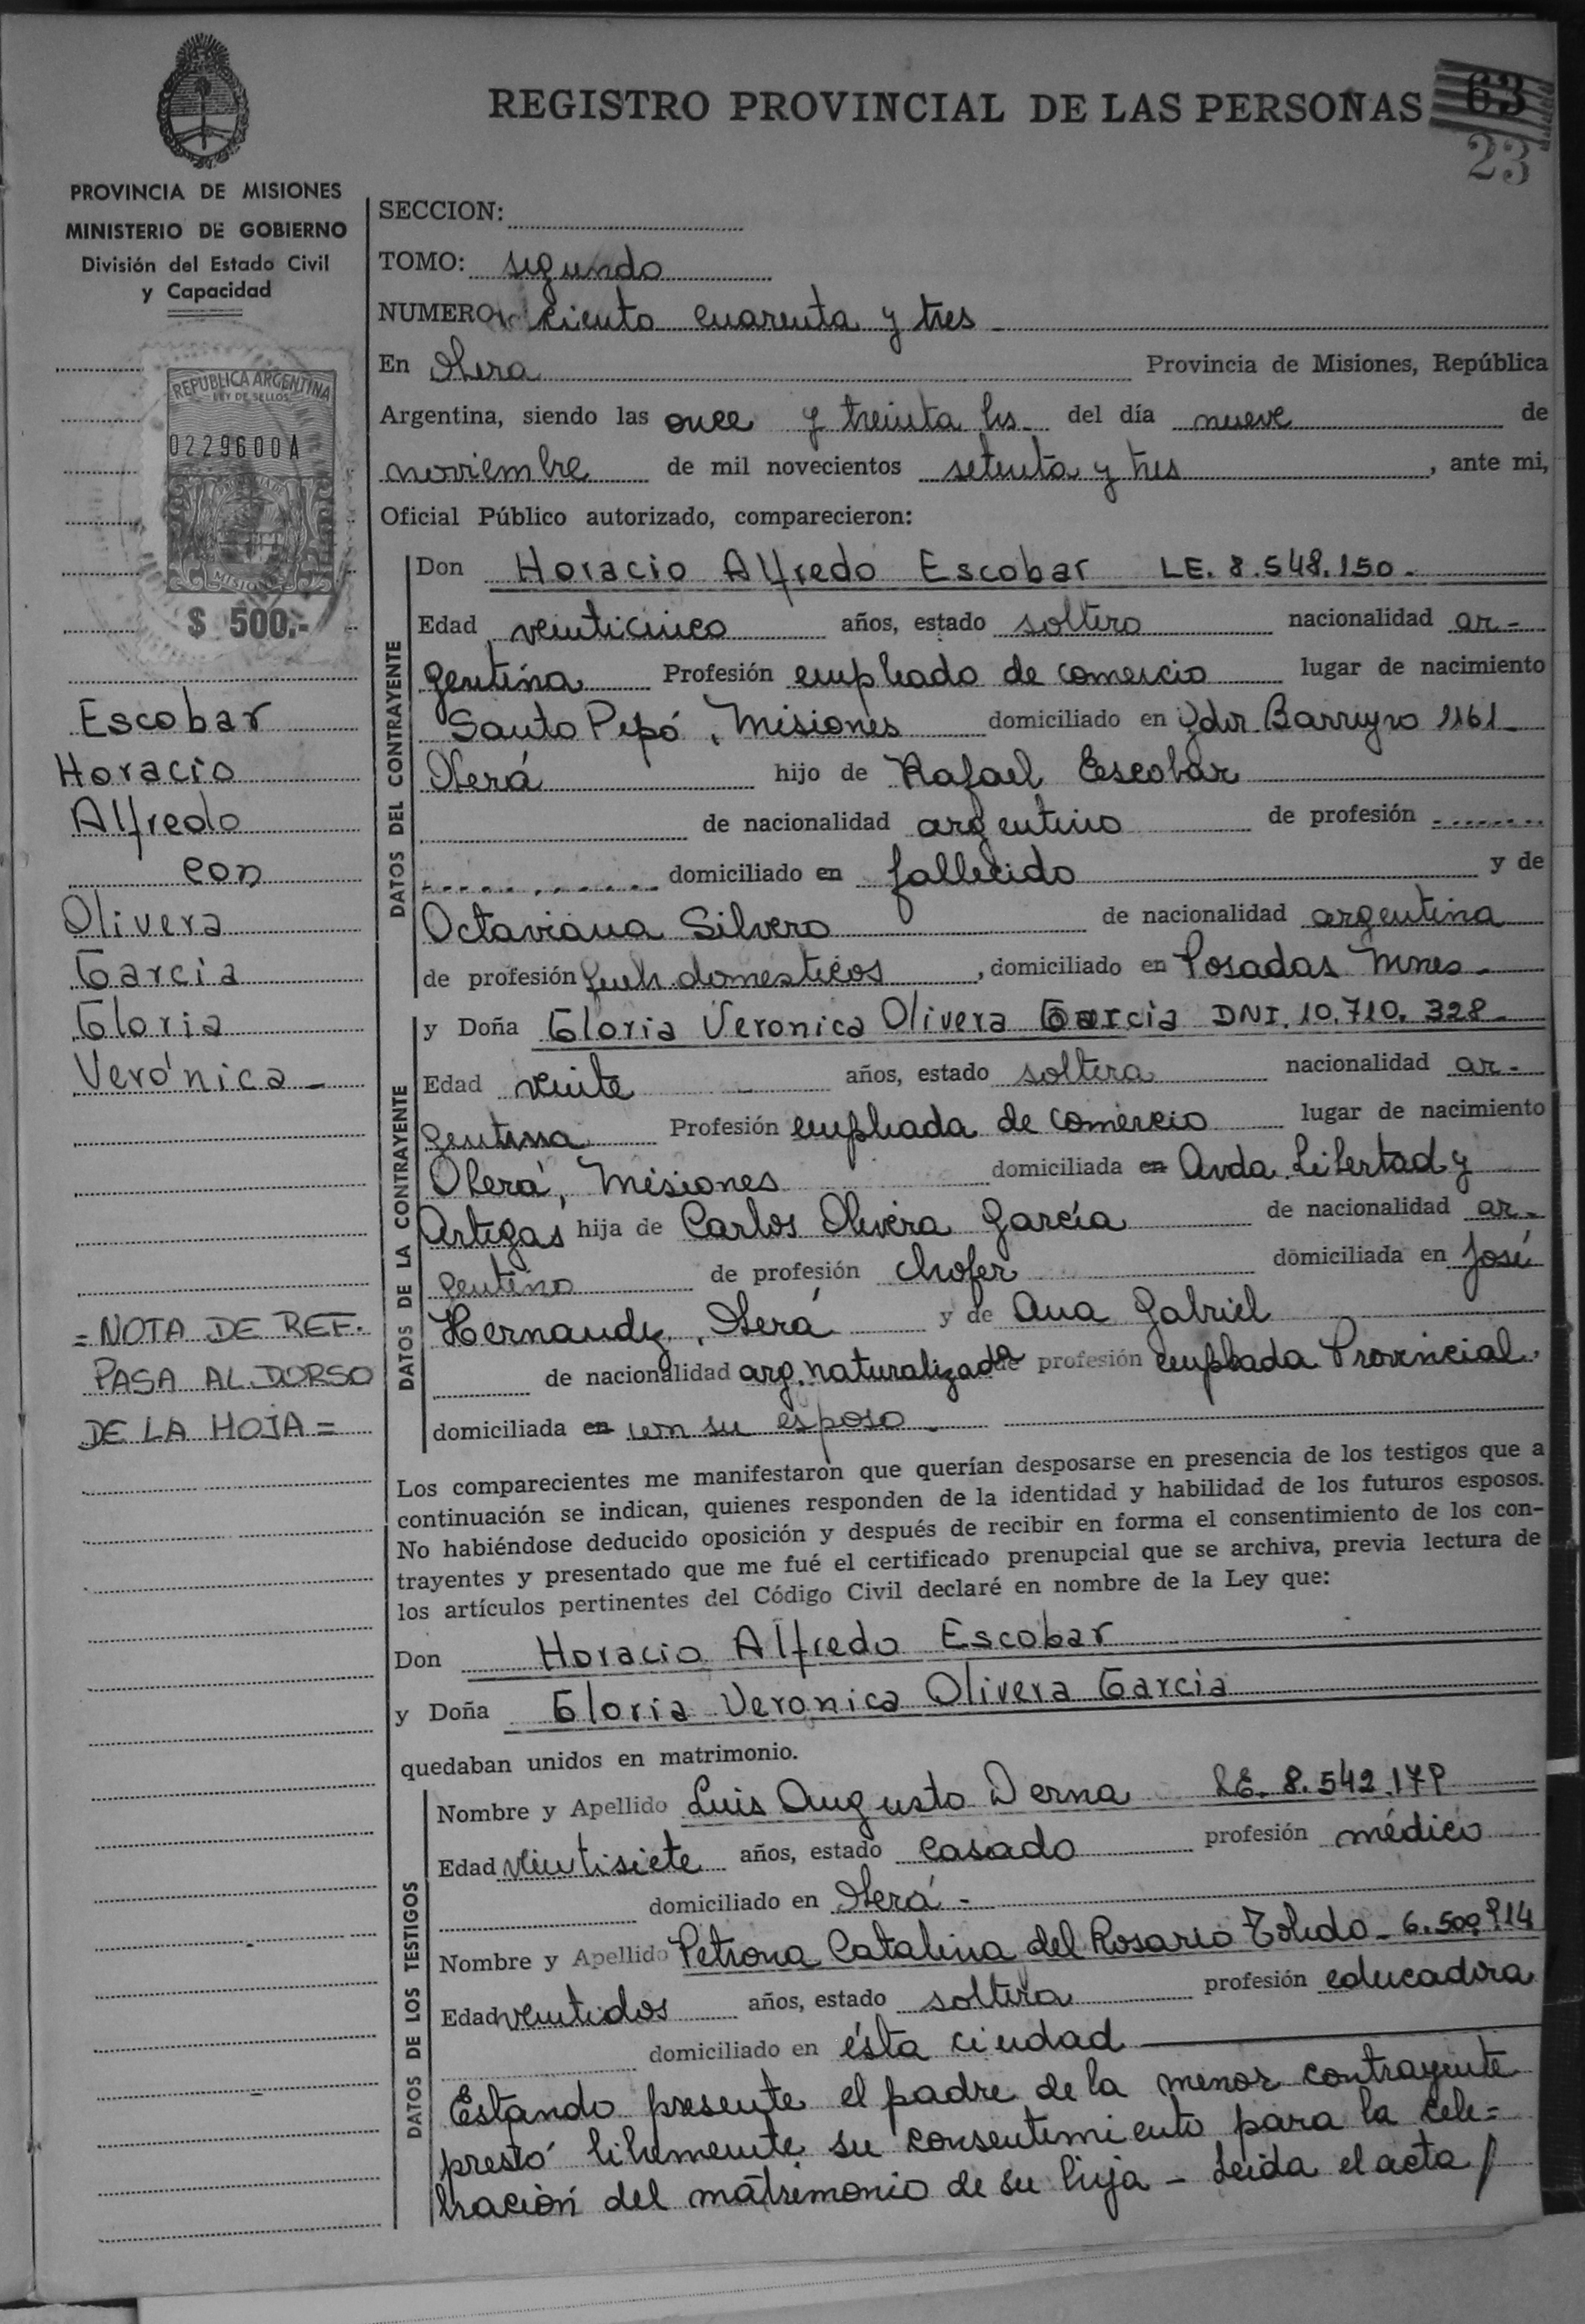 REGISTRO PROVINCIAL DE LAS PERSONAS
63
23
PROVINCIA DE MISIONES
MINISTERIO DE GOBIERNO
División del Estado Civil
y Capacidad
REPUBLICA ARGENTINA
LEY DE SELLOS
0229600A
MISIONES
$ 500.-
Escobar
Horacio
Alfredo
con
Olivera
Garcia
Gloria
Verónica -
= NOTA DE REF.
PASA AL DORSO
DE LA HOJA =
SECCION:
TOMO: segundo
NUMERO ciento cuarenta y tres -
En Oberá Provincia de Misiones, República
Argentina, siendo las once y treinta hs. del día nueve de
noviembre de mil novecientos setenta y tres, ante mi,
Oficial Público autorizado, comparecieron:
DATOS DEL CONTRAYENTE
Don Horacio Alfredo Escobar LE. 8.548.150-
Edad veinticinco años, estado soltero nacionalidad ar-
gentina Profesión empleado de comercio lugar de nacimiento
Santo Pipó, Misiones domiciliado en Barreyro 1161-
Oberá hijo de Rafael Escobar
de nacionalidad argentino de profesión
domiciliado en fallecido y de
Octaviana Silvero de nacionalidad argentina
de profesión queh. domésticos, domiciliado en Posadas Mnes-
DATOS DE LA CONTRAYENTE
y Doña Gloria Veronica Olivera Garcia DNI. 10.710.328-
Edad veinte años, estado soltera nacionalidad ar-
gentina Profesión empleada de comercio lugar de nacimiento
Oberá, Misiones domiciliada en Avda. Libertad y
Artigas hija de Carlos Olivera García de nacionalidad ar-
gentino de profesión chofer domiciliada en José
Hernandez, Oberá y de Ana Gabriel
de nacionalidad arg. naturalizada de profesión empleada Provincial.
domiciliada en con su esposo -
Los comparecientes me manifestaron que querían desposarse en presencia de los testigos que a
continuación se indican, quienes responden de la identidad y habilidad de los futuros esposos.
No habiéndose deducido oposición y después de recibir en forma el consentimiento de los con-
trayentes y presentado que me fué el certificado prenupcial que se archiva, previa lectura de
los artículos pertinentes del Código Civil declaré en nombre de la Ley que:
Don Horacio Alfredo Escobar
y Doña Gloria Veronica Olivera Garcia
quedaban unidos en matrimonio.
DATOS DE LOS TESTIGOS
Nombre y Apellido Luis Augusto Derna LE. 8.542.179
Edad veintisiete años, estado casado profesión médico
domiciliado en Oberá -
Nombre y Apellido Petrona Catalina del Rosario Toledo - 6.509.914
Edad veintidos años, estado soltera profesión educadora
domiciliado en ésta ciudad
Estando presente el padre de la menor contrayente
prestó libremente su consentimiento para la cele=
bración del mátrimonio de su hija - Leida el acta /